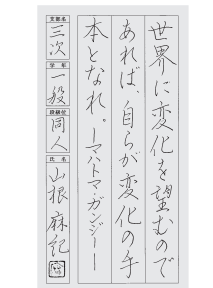 世界に変化を望むので
あれば、自らが変化の手
本となれ。ーマハトマ・ガンジーー
支部名
三次
学年
一般
段級位
同人
氏名
山根麻紀